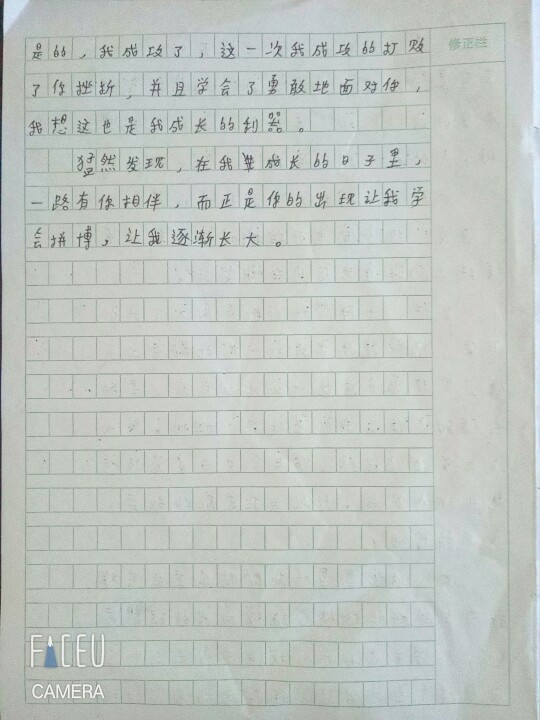 修正栏
是的，我成功了，这一次我成功的打败
了你挫折，并且学会了勇敢地面对你，
我想这也是我成长的利器。
猛然发现，在我成长的日子里，
一路有你相伴，而正是你的出现让我学
会拼博，让我逐渐长大。
FACEU
CAMERA